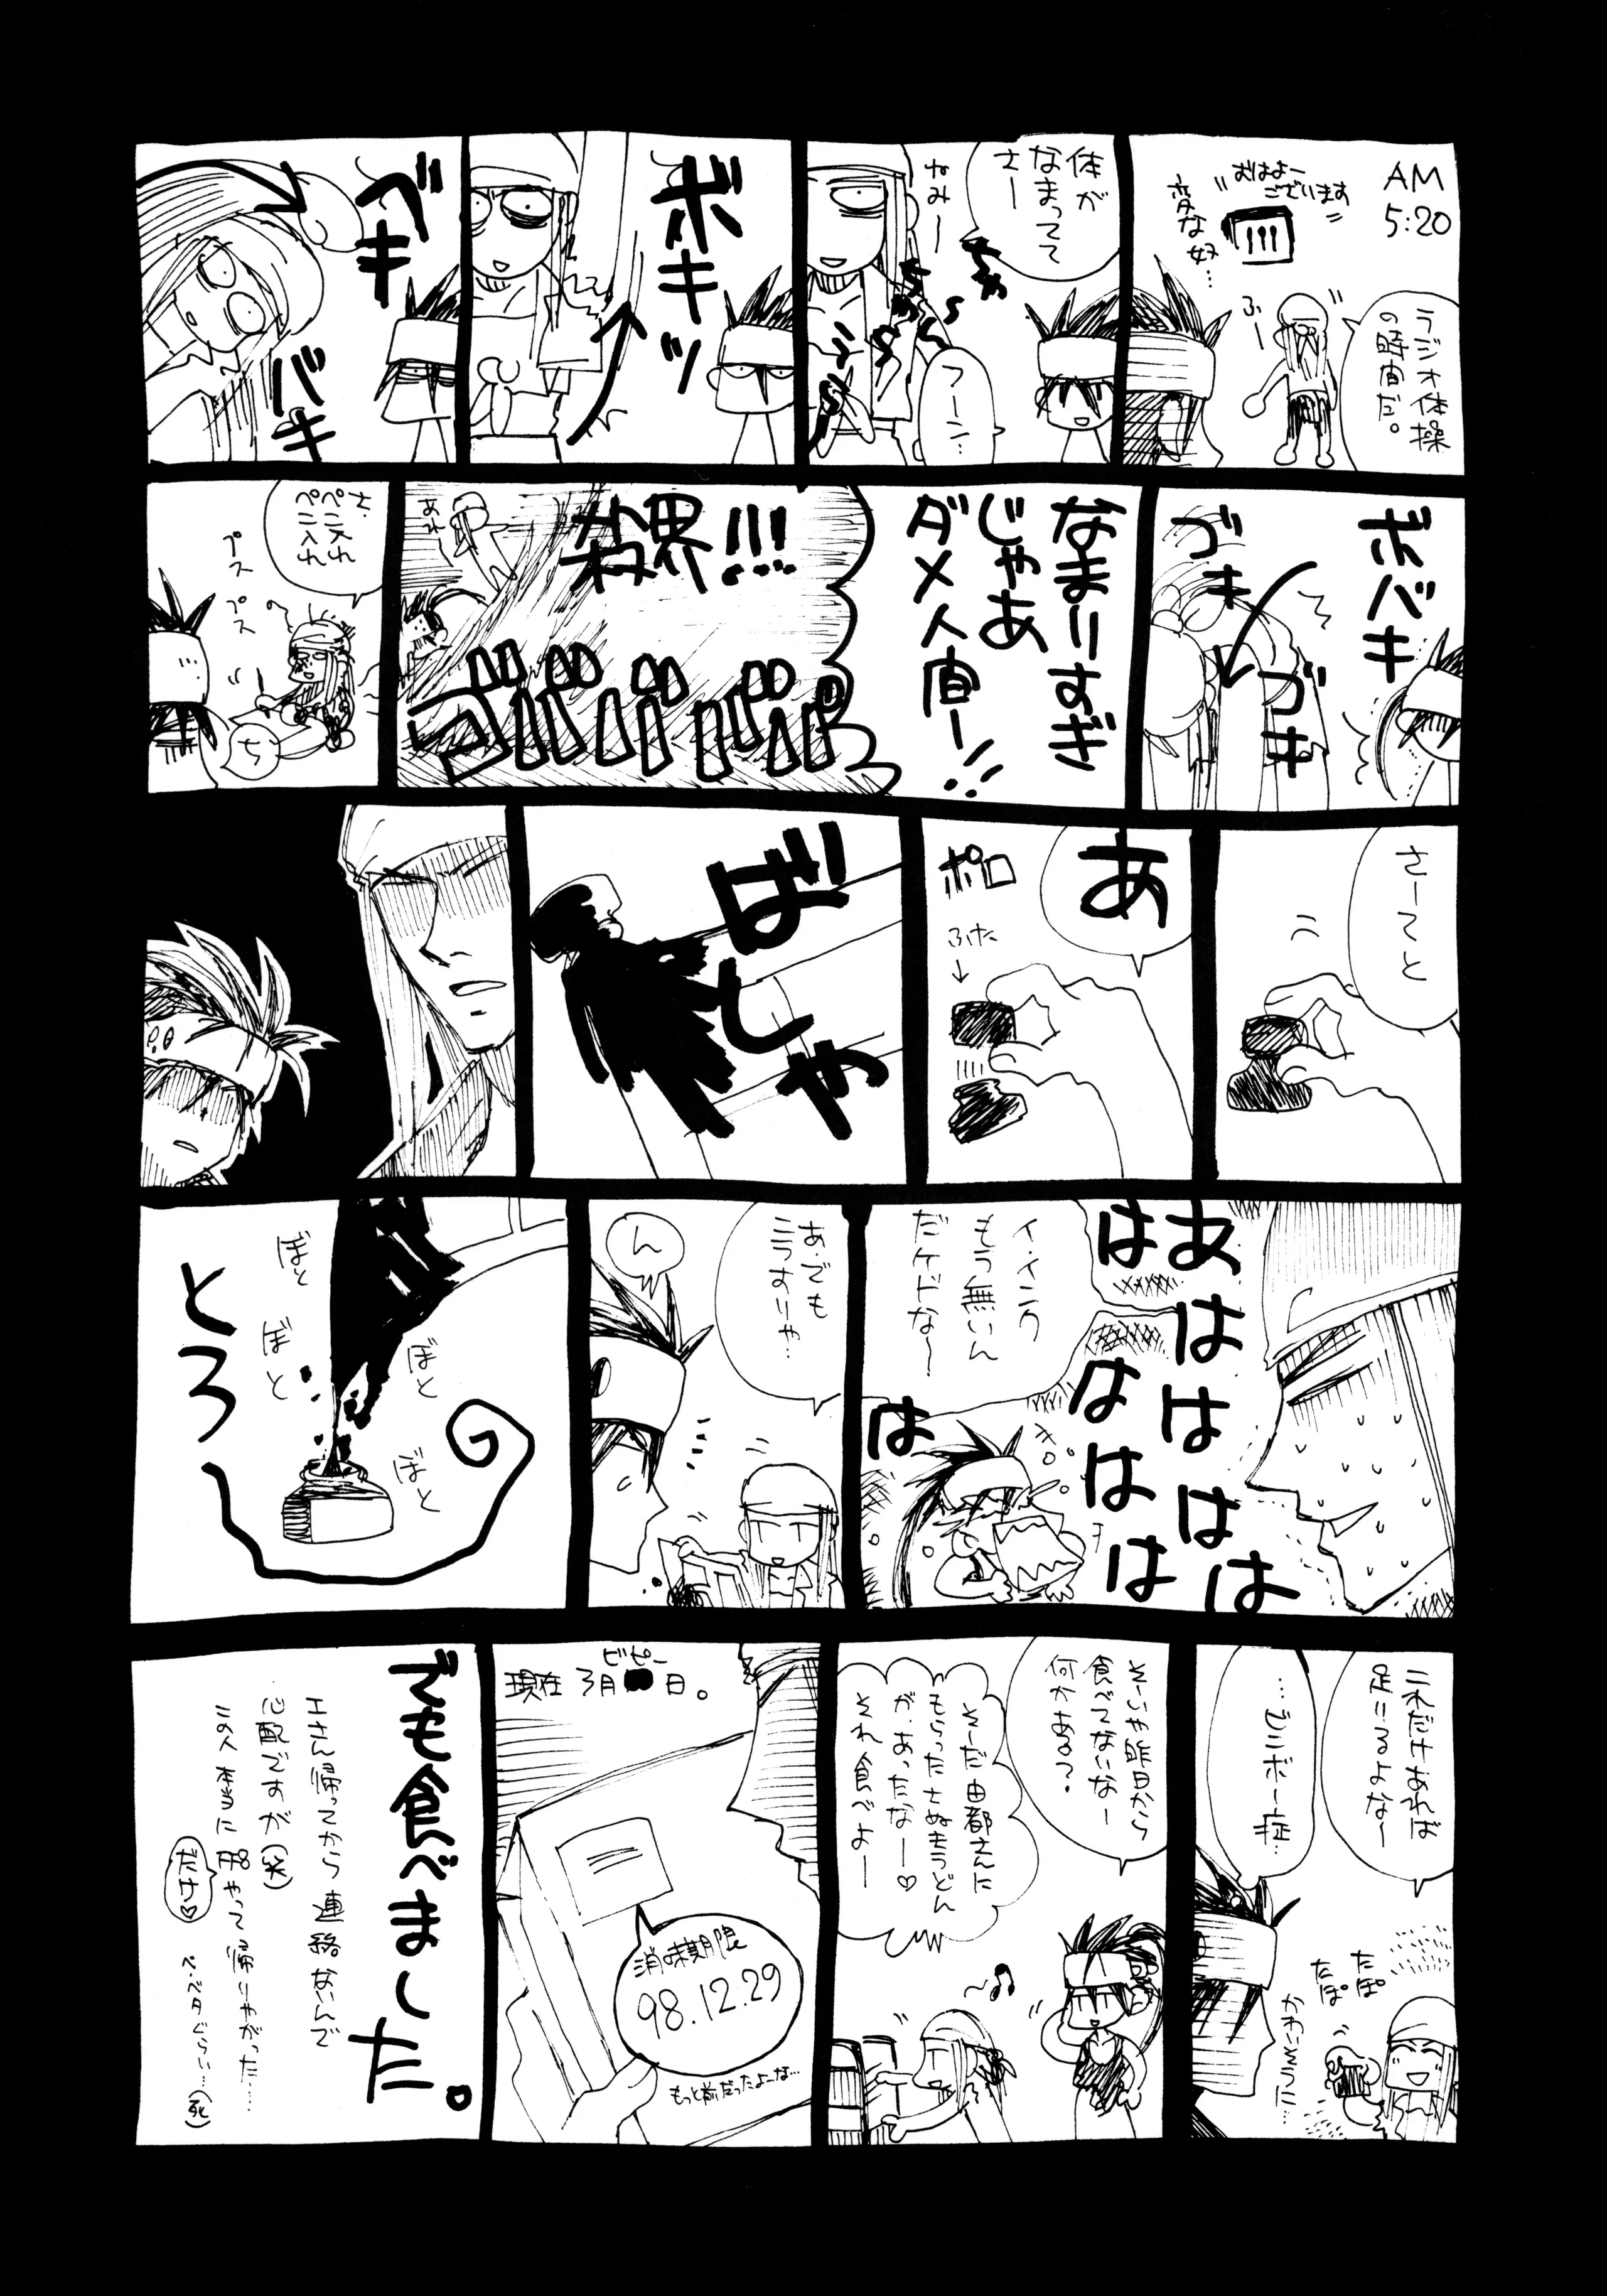 AM
5:20
ラジオ体操
の時間だ。
"おはよー
ございます"
ふー
変な奴…
体が
なまってて
さー
ねみー
フーン…
ボキッ
ベキ
バキ
ボバキ
ゴキ
ゴキ
なまーりすぎ
じゃあ
ダメ人間ー!!
殺界!!!
ゴババババ
あれ
さ・
ペン入れ
ペン入れ
プス
プス
さーてと
あ
ポロ
ふた
↓
ばしゃ
あはははは
ははははは
は
イ・インク
もう無いん
だケドな〜
あ・でも
こうすりゃ…
ん
ぼと
ぼと
ぼと
ぼと
とろ
これだけあれば
足りるよなー
…ビンボー症…
たぽ
たぽ
かわいそうに…
そーいや昨日から
食べてないなー
何かある?
そーだ由都さんに
もらったさぬきうどん
が、あったなー♡
それ食べよー
〜♫
ビピー
現在3月 日。
消味期限
98.12.29
もっと前だったよーな…
でも食べました。
エさん帰ってから連絡ないんで
心配ですが(笑)
この人本当に やって帰りやがった……
だけ♡
ベ・ベタぐらい…(死)